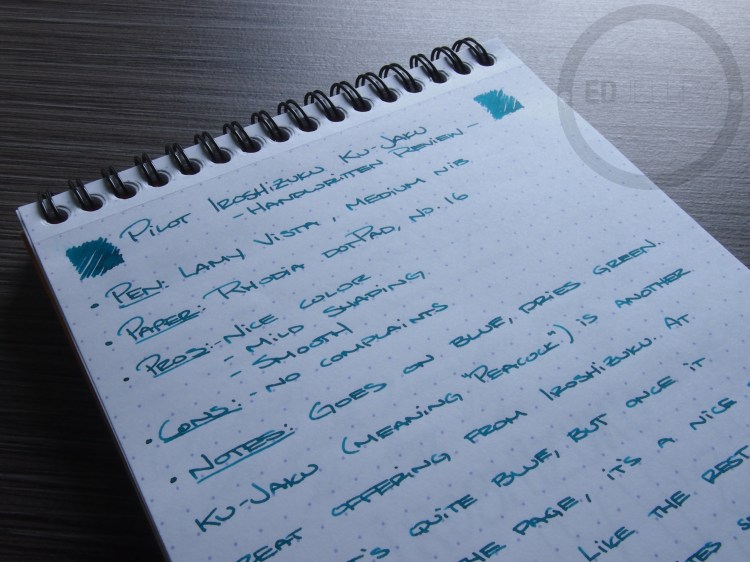 PILOT IROSHIZUKU KU-JAKU
- HANDWRITTEN REVIEW -
• PEN: LAMY VISTA, MEDIUM NIB
• PAPER: RHODIA DOTPAD, NO. 16
• PROS: - NICE COLOR
- MILD SHADING
- SMOOTH
• CONS: - NO COMPLAINTS
• NOTES: GOES ON BLUE, DRIES GREEN.
KU-JAKU (MEANING "PEACOCK") IS ANOTHER
GREAT OFFERING FROM IROSHIZUKU. AT
IT'S QUITE BLUE, BUT ONCE IT
THE PAGE, IT'S A NICE
LIKE THE REST
ED